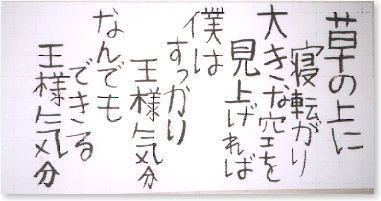 草の上に
寝転がり
大きな空を
見上げれば
僕は
すっかり
王様気分
なんでも
できる
王様気分